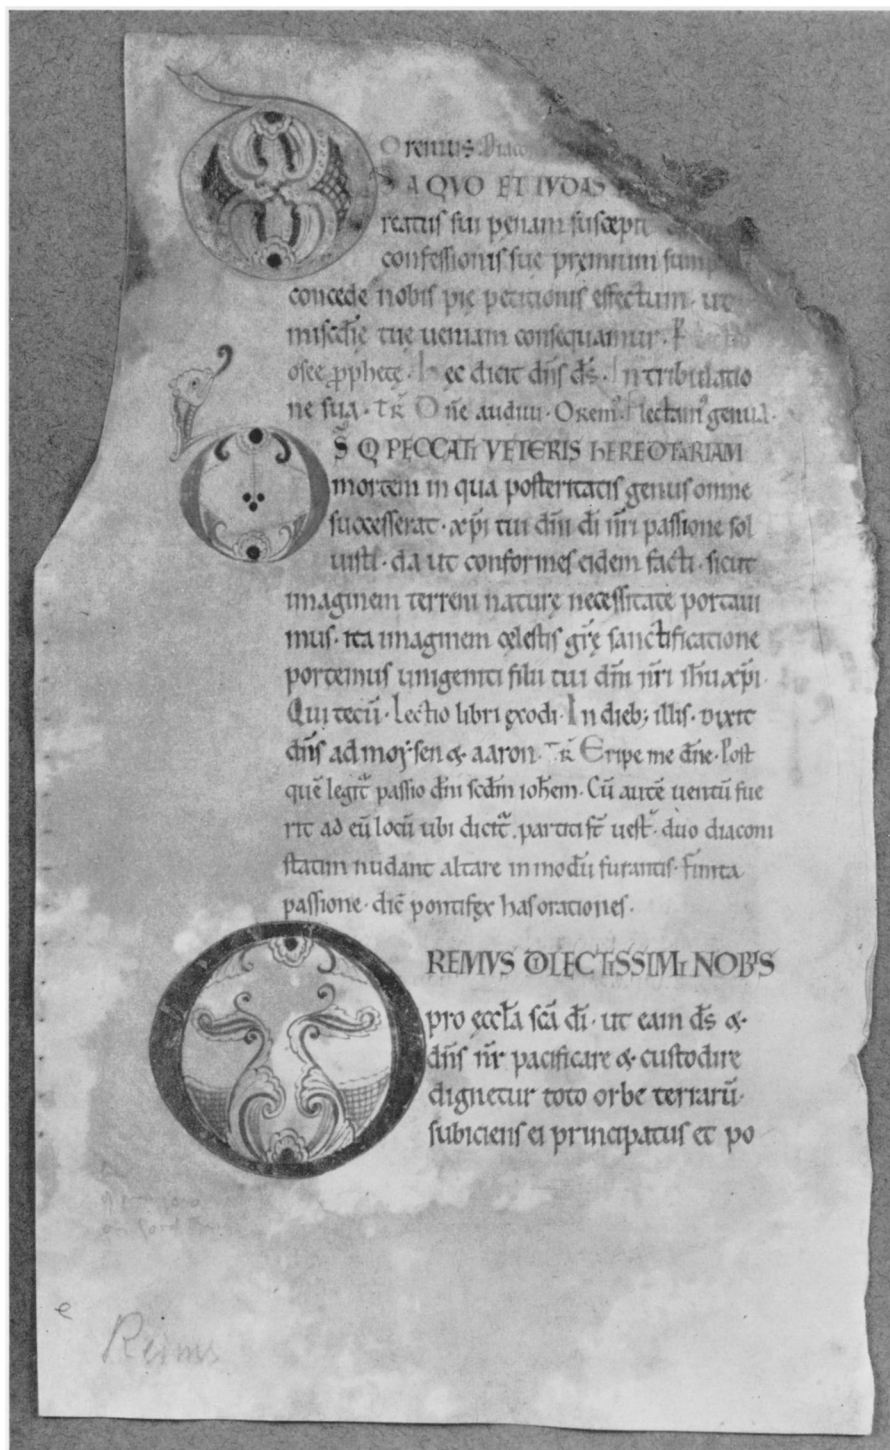 Oremus. Diaco
S A QVO ET IVDAS
reatus sui penam suscepit
confessionis sue pręmium sump
concede nobis pię petitionis effectum. ut
miscdię tuę ueniam consequamur.
osee ꝓphetę. hęc dicit dn̄s ds̄. In tribulatio
ne sua. TR̄ Dn̄e audiui. Orem᷒. flectam᷒ genua.
DS̄ Q PECCATI VETERIS hEREDITARIAM
mortem in qua posteritatis genus omne
successerat. xp̄i tui dn̄i di̅ nr̄i passione sol
uisti. da ut conformes eidem facti. sicut
imaginem terreni naturę necessitate portaui
mus. ita imaginem cęlestis gr̄ę sanctificatione
portemus unigeniti filii tui dn̄i nr̄i ih̄u xp̄i.
Qui tecū. Lectio libri exodi. In dieb; illis. dixit
dn̄s ad moysen & aaron. TR̄ Eripe me dn̄e. Post
quē legit᷑ passio dn̄i scdm̄ ioh̄em. Cū autē uentū fue
rit ad eū locū ubi dicit᷑. partiti st̄ uest̄. duo diaconi
statim nudant altare in modū furantis. finita
passione. dic̄ pontifex has orationes.
OREMVS DILECTISSIMI NOBIS
pro ęccl̄a sc̄a di̅. ut eam ds̄ &
dn̄s nr̄ pacificare & custodire
dignetur toto orbe terrarū.
subiciens ei principatus et po
e
Reims